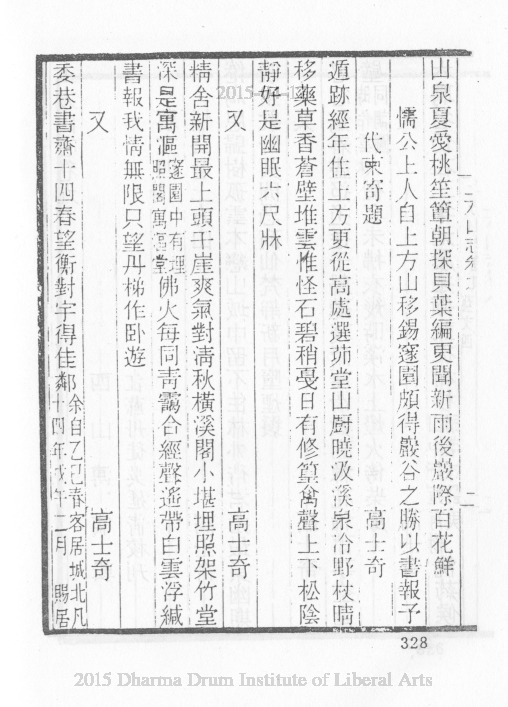 山泉夏愛桃笙簟朝探貝葉編更聞新雨後巖際百花鮮
儒公上人自上方山移錫薖園頗得巖谷之勝以書報予
代柬寄題　高士奇
遁跡經年住上方更從高處選茆堂山厨曉汲溪泉冷野杖晴
移藥草香蒼壁堆雲惟怪石碧稍戞日有修篁禽聲上下松陰
靜好是幽眠六尺牀
又　高士奇
精舍新開最上頭千崖爽氣對清秋橫溪閣小堪埋照架竹堂
深是寓漚薖園中有埋照閣寓漚堂佛火每同青靄合經聲遙帶白雲浮緘
書報我情無限只望丹梯作卧遊
又　高士奇
委巷書齋十四春望衡對宇得佳鄰余自乙巳春客居城北凡十四年戊午二月賜居
二
328
2015 Dharma Drum Institute of Liberal Arts